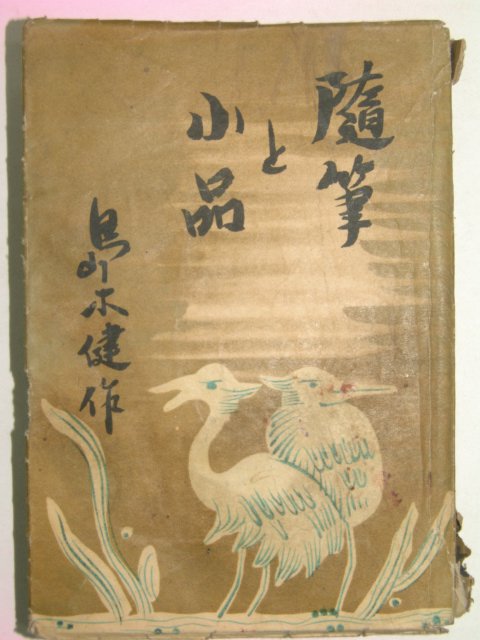 隨筆
と
小品
島木健作